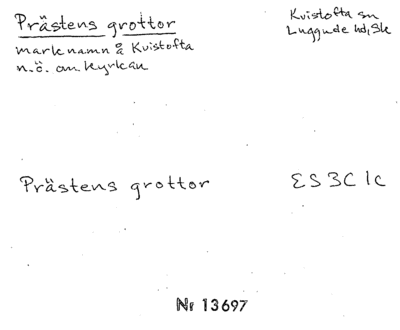 Prästens grottor
marknamn å Kvistofta
n.ö. om kyrkan
Kvistofta sn
Luggude hd, Sk
Prästens grottor
ES 3C 1c
Nr 13697